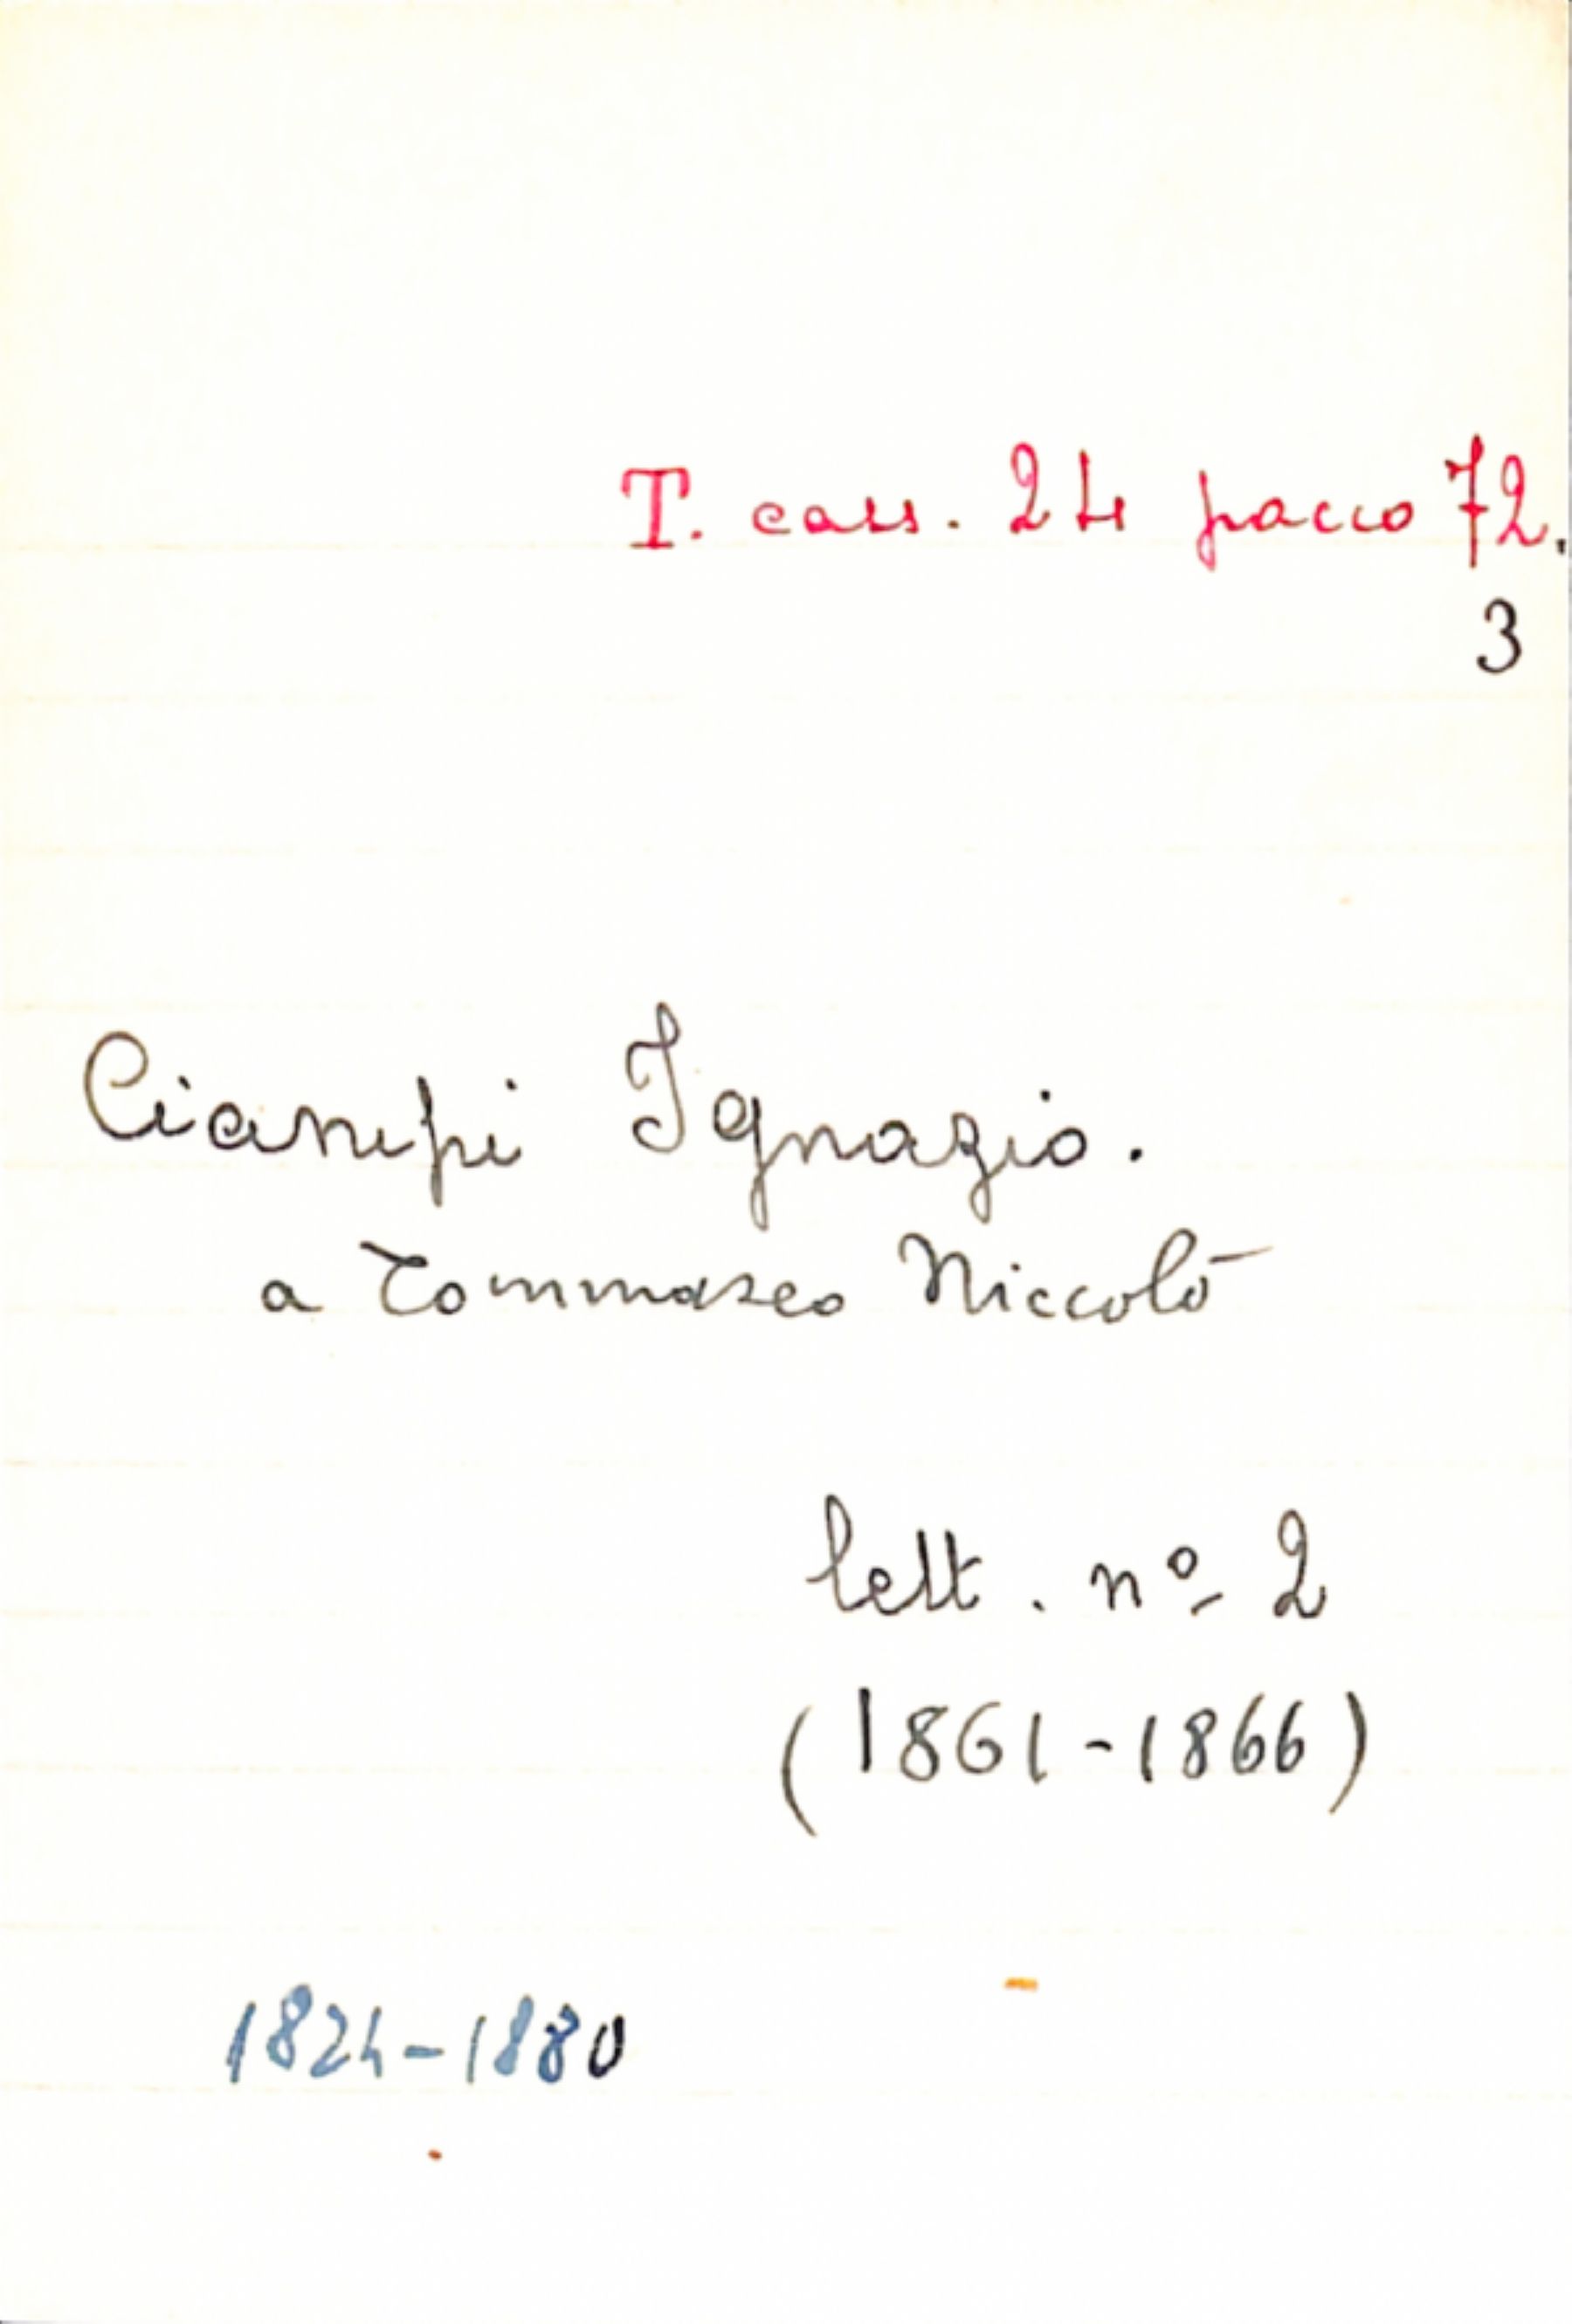 T. cass. 24 pacco 72.
3
Ciampi Ignazio.
a Tommaseo Niccolò
lett. nº 2
(1861-1866)
1824-1880